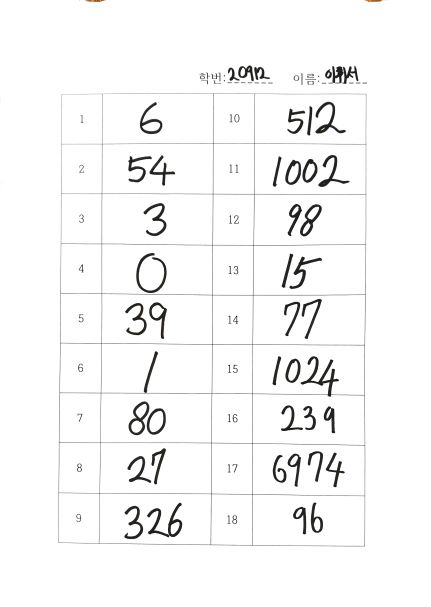 학번: 20912 이름: 이휘서
1 6 10 512
2 54 11 1002
3 3 12 98
4 0 13 15
5 39 14 77
6 1 15 1024
7 80 16 239
8 27 17 6974
9 326 18 96